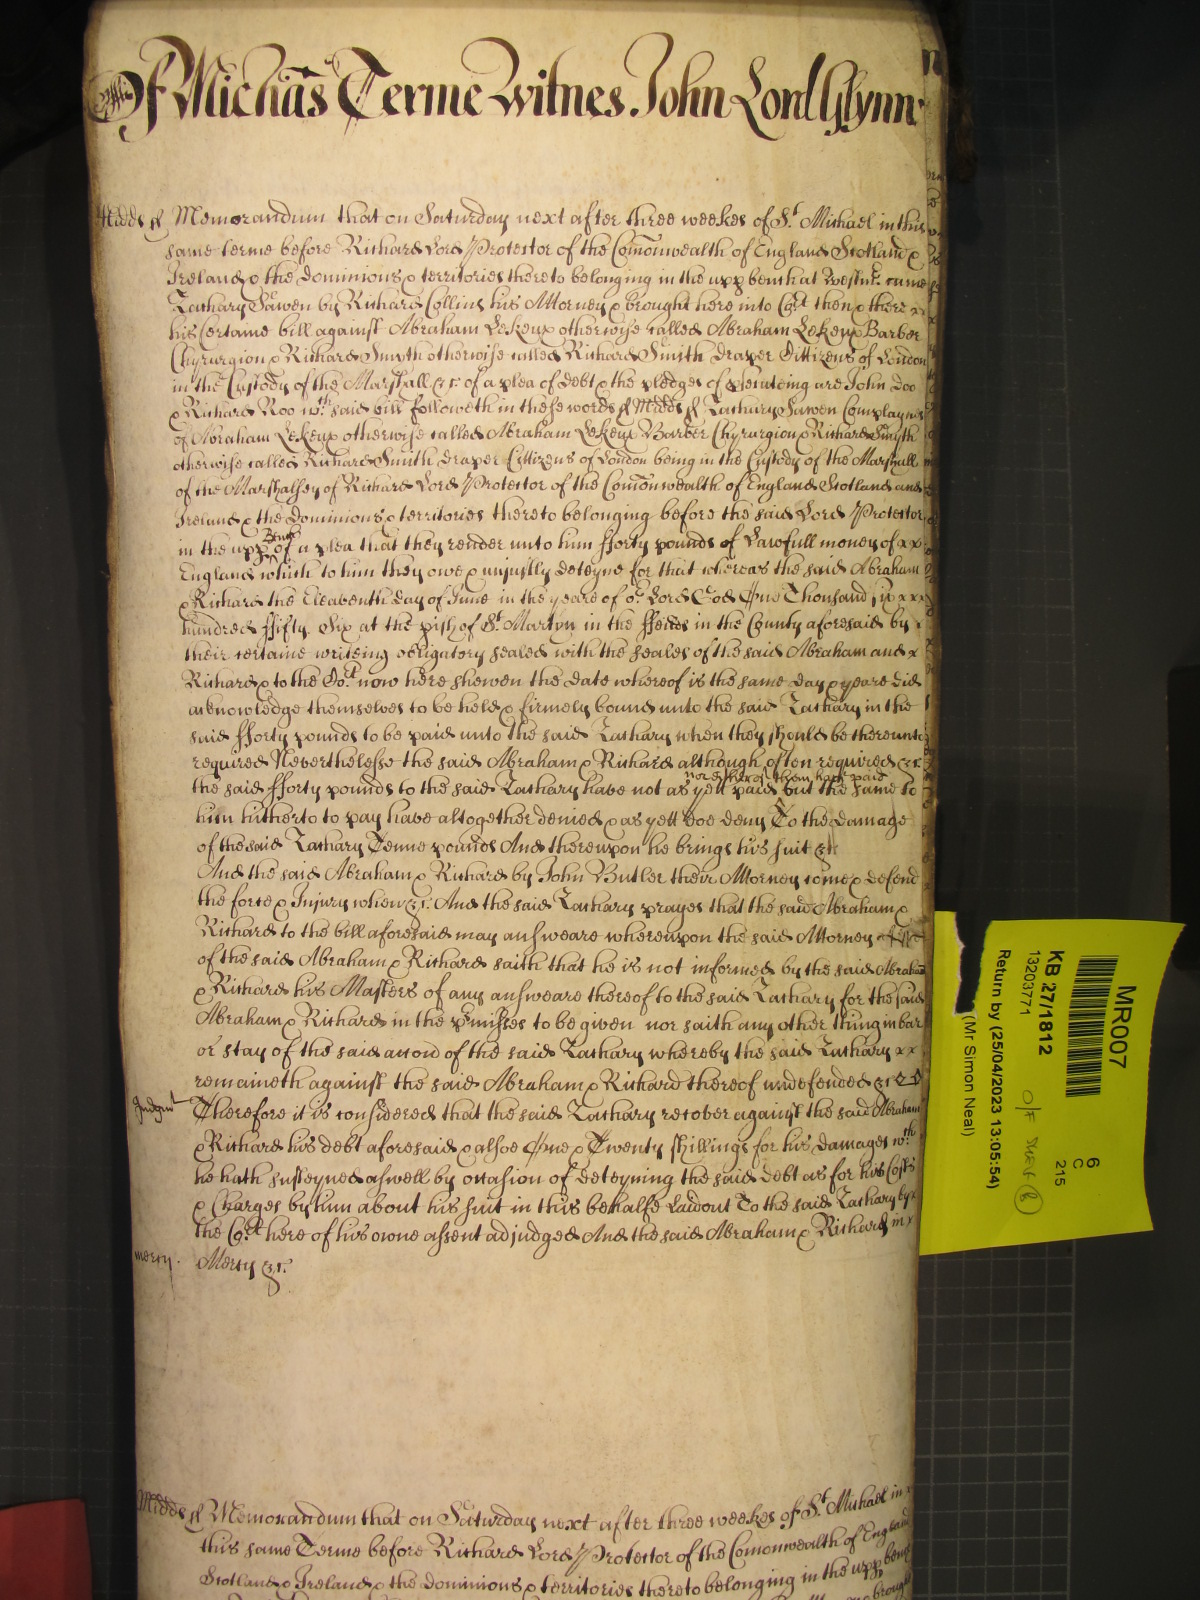 Of Michãs Terme Witnes John Lord Glynn
Midds ss Memorandum that on Saturday next after three weekes of St Michael in this
same terme before Richard Lord Protector of the Com̃onwealth of England Scotland &
Ireland & the dominions & territories thereto belonging in the upp bench at Westmr came
Zachary Sawen by Richard Collins his Attorney & brought here into Cort then & there xx
his Certaine bill against Abraham Lekeux otherwise called Abraham Lekeux Barber
Chyrurgion & Richard Smyth otherwise called Richard Smith draper Cittizens of London
in the Custody of the Marshall &c of a plea of debt & the pledges of prsecuteing are John Doo
& Richard Roo wch said bill followeth in these words ss Midds ss Zachary Sawen Complaynes
of Abraham Lekeux otherwise called Abraham Lekeux Barber Chyrurgion & Richard Smyth
otherwise called Richard Smith draper Cittizens of London being in the Custody of the Marshall
of the Marshalsey of Richard Lord Protector of the Com̃onwealth of England Scotland and
Ireland & the Dominions & territories thereto belonging before the said Lord Protector
in the upp Bench of a plea that they render unto him fforty pounds of Lawfull money of xx
England which to him they owe & unjustly deteyne for that whereas the said Abraham
& Richard the Eleaventh day of June in the yeare of or Lord God One Thousand six xxx
hundred ffifty Six at the pish of St Martyn in the ffeilds in the County aforesaid by x
their certaine writeing obligatory sealed with the seales of the said Abraham and x
Richard & to the Cort now here shewen the date whereof is the same day & yeare did
acknowledge themselves to be held & firmely bound unto the said Zachary in the
said fforty pounds to be paid unto the said Zachary when they should be thereunto
required Neverthelesse the said Abraham & Richard although often required &c
the said fforty pounds to the said Zachary have not as yett paid nor either of them hath paid but the same to
him hitherto to pay have altogether denied & as yett doe deny To the damage
of the said Zachary Tenne pounds And thereupon he brings his suit &c
And the said Abraham & Richard by John Butler their Attorney come & defend
the force & Injury when &c And the said Zachary prayes that the said Abraham &
Richard to the bill aforesaid may answeare whereupon the said Attorney
of the said Abraham & Richard saith that he is not informed by the said Abraham
& Richard his Masters of any answeare thereof to the said Zachary for the said
Abraham & Richard in the pmisses to be given nor saith any other thing in bar
or stay of the said accon̄ of the said Zachary whereby the said Zachary xx
remaineth against the said Abraham & Richard thereof undefended &c
Judgmt Therefore it is considered that the said Zachary recover against the said Abraham
& Richard his debt aforesaid & alsoe One & Twenty shillings for his damages wch
he hath susteyned aswell by occasion of deteyning the said debt as for his Costs
& Charges by him about his suit in this behalfe Laidout To the said Zachary by x
the Cort here of his owne assent adjudged And the said Abraham & Richard in x
mercy. Mercy &c.
Midds ss Memorandum that on Saturday next after three weekes of St Michael in
this same Terme before Richard Lord Protector of the Com̃onwealth of England
Scotland & Ireland & the dominions & territories thereto belonging in the upp bench
MR007
KB 27/1812
13203771
Return by (25/04/2023 13:05:54)
(Mr Simon Neal)
6
C
215